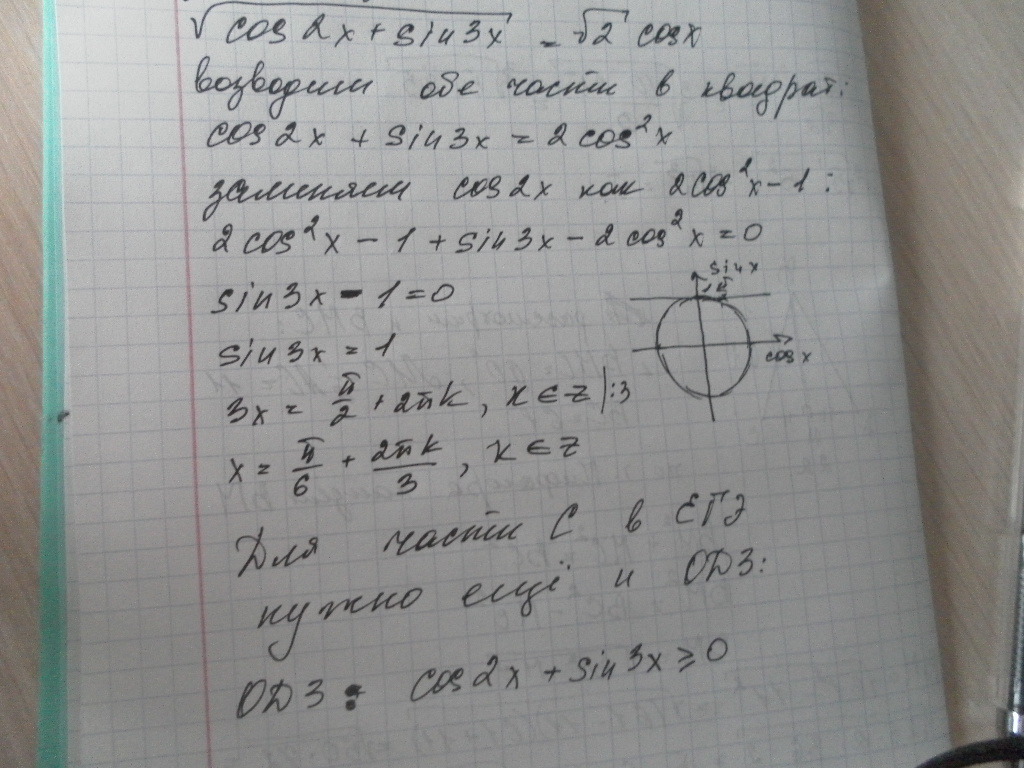 √(cos2x + sin3x) = √2 cosx
возводим обе части в квадрат:
cos2x + sin3x = 2cos²x
заменяем cos2x как 2cos²x - 1 :
2cos²x - 1 + sin3x - 2cos²x = 0
sin3x - 1 = 0
sin x
cos x
sin3x = 1
3x = π/2 + 2πk , k ∈ z |:3
x = π/6 + 2πk/3 , k ∈ z
Для части С в ЕГЭ
нужно ещё и ОДЗ:
ОДЗ : cos2x + sin3x ≥ 0